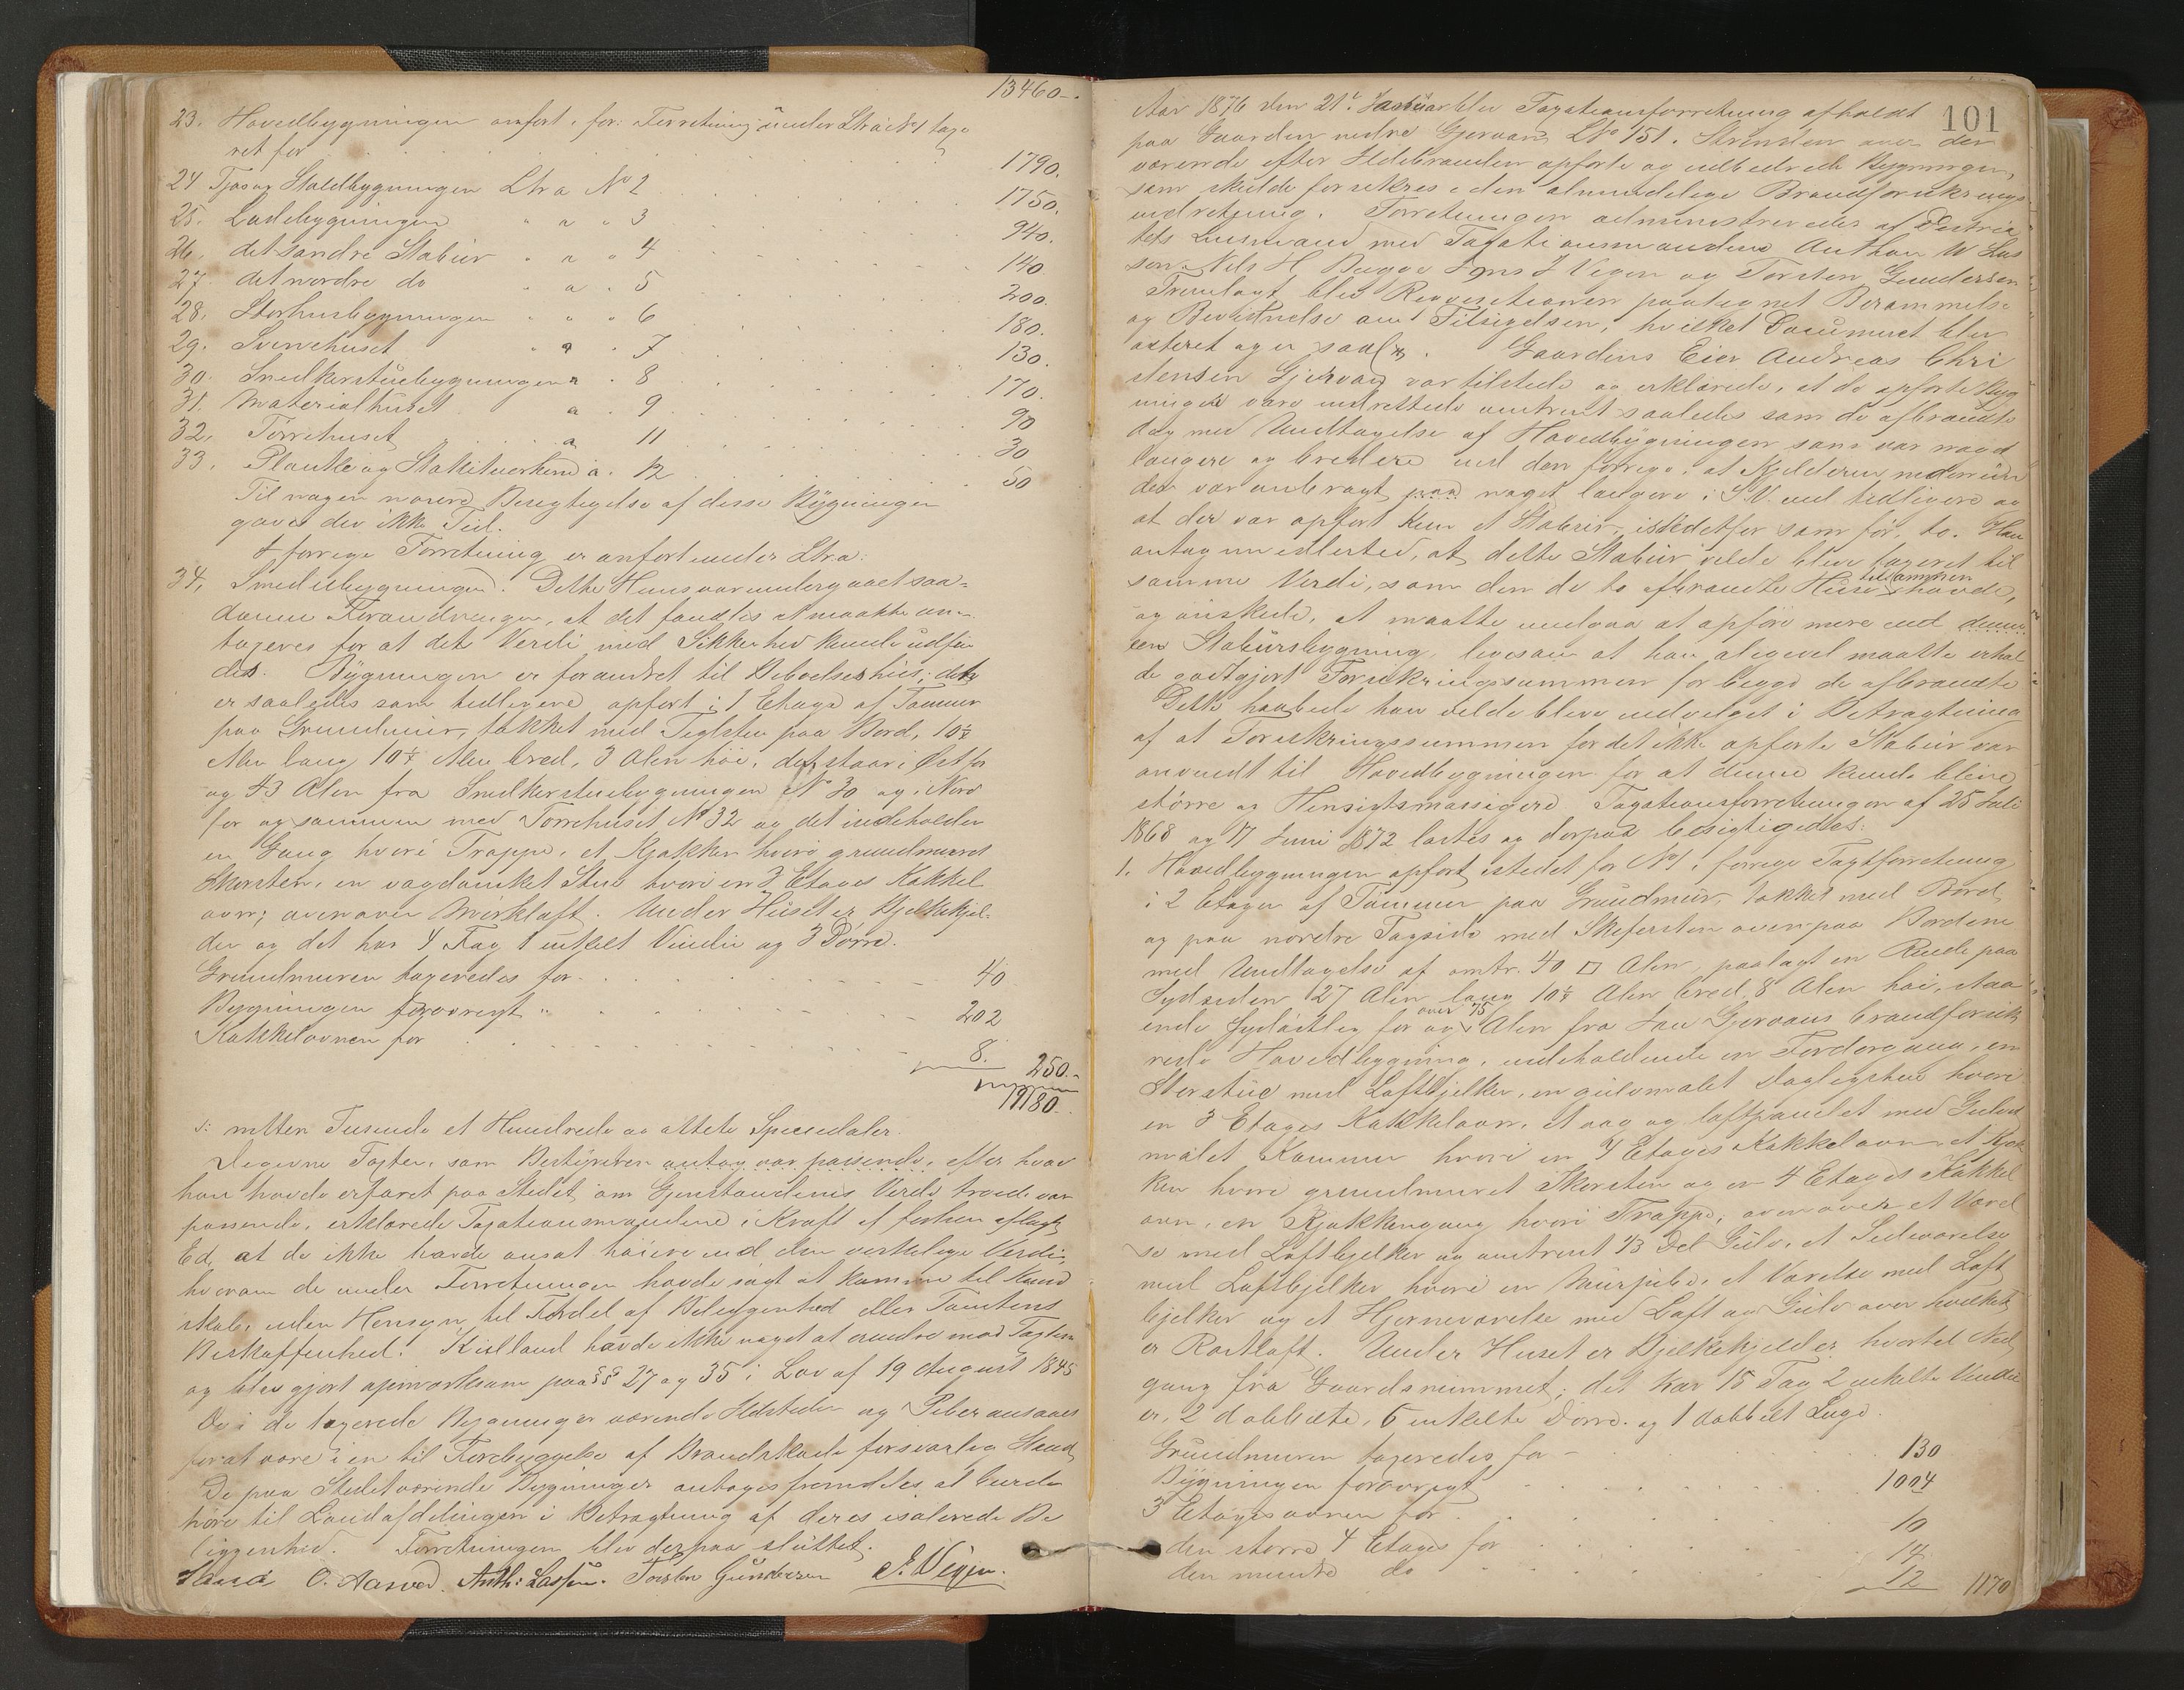 13460-.
23. Hovedbygningen anfört i for: Forretning under Litra a No 1 taxe
ret for 1790.
24 Fjøs og Staldbygningen Ltra No 2 1750.
25. Ladebygningen " a " 3 940.
26. det søndre Stabur " a " 4 140
27. det nordre do " a " 5 200.
28. Storhusbygningen " " " 6 180.
29. Svinehuset " a " 7 130.
30. Snedkerstuebygningen a " 8 170.
31. Materialhuset a " 9 90
32. Törrehuset a 11 30
33. Planke og Stakitværkerne a. 12 50
Til nogen nöiere Besigtigelse af disse Bygninger
gaves der ikke Tid.
I forrige Forretning er anfört under Ltra:
34. Smediebygningen. Dette Huus var undergaaet saa-
danne Forandringer, at det fandtes at maatte an-
tageres for at dets Verdi med Sikkerhed kunde udfin
des. Bygningen er forandret til Beboelseshus; det
er saaledes som tidligere opfört i 1 Etage af Tömmer
paa Grundmuur, takket med Teglsten paa Bord, 10½
Alen lang 10½ Alen bred, 3 Alen höi, det staar i Öst for
og 43 Alen fra Snedkerstuebygningen No 30 og i Nord
for og sammen med Törrehuset No 32 og det indeholder
en Gang hvori Trappe, et Kjøkken hvori grundmuret
Skorsten, en vægpanket Stue hvori en 3 Etages Kakkel
ovn; ovenover Mörkloft. Under Huset er Bjelkekjel-
der og det har 4 Fag 1 enkelt Vindu og 3 Dörre.
Grundmuren taxeredes for 40
Bygningen forövrigt " 202
Kakkelovnen for 8. 250.-
19180.
s: nitten Tusende et Hundrede og ottete Speciedaler.
Degivne Taxter, som Bestyreren antog var passende, efter hvad
han havde erfaret paa Stedet om Gjenstandenes Verdi troede var
passende, erklærede Taxationsmændene i Kraft af forhen aflagt
Ed, at de ikke havde ansat höiere end den virkelige Verdi,
hvorom de under Forretningen havde sögt at komme til Kund
skab, uden Hensyn til Fordel af Beliggenhed eller Tomtens
Beskaffenhed. Kielland havde ikke noget at erindre mod Taxten
og blev gjort opmerksom paa §§ 27 og 35 i Lov af 19 August 1845
De i de taxerede Bygninger værende Ildsteder og Piber ansaaes
for at være i en til Forebyggelse af Brandskade forsvarlig Stand
De paa Stedet værende Bygninger antoges fremdeles at burde
höre til Landafdelingen i Betragtning af deres isolerede Be
liggenhed. Forretningen blev derpaa sluttet.
O. Aasved. Anth: Lassen. Torsten Gundersen J. Vigen.
101
Aar 1876 den 21de Januar blev Taxationsforretning afholdt
paa Gaarden nedre Gjervan, LNo 151. Strinden over der
værende efter Ildebranden opförte og udbedrede Bygninger,
som skulde forsikres i den almindelige Brandforsikrings
indretning. Forretningen administreredes af Distric
tets Lensmand med Taxationsmændene Anthon W Las
sen, Nils H. Bugge Jens J Vigen og Torsten Gundersen
Fremlagt blev Reqvisitionen paategnet Berammelse
og Bevidnelse om Tilsigelsen, hvilket Document blev
acteret og er saal. Gaardens Eier Andreas Chri
stensen Gjervan var tilstede og erklærede, at de opförte Byg
ninger vare indrettede omtrent saaledes som de afbrændte
dog med Undtagelse af Hovedbygningen som var noget
længere og bredere end den forrige, at Kjelderen nedenun
der var anbragt paa noget længere i SV. end tidligere og
at der var opfört kun et Stabur, istedetfor som för, to. Han
antog imidlertid, at dette Stabur vilde blive taxeret til
samme Verdi, som den de to afbrændte Huse tilsammen havde,
og önskede, at maatte undgaa at opföre mere end denne
een Stabursbygning, ligesom at han alligevel maatte erhol
de godtgjort Forsikringssummen for begge de afbrændte
Dette haabede han vilde blive indvilget i Betragtning
af at Forsikringssummen for det ikke opförte Stabur var
anvendt til Hovedbygningen for at denne kunde blive
större og Hensigtsmæssigere Taxationsforretningen af 25 Juli
1868 og 17 Juni 1872 læstes og derpaa besigtigedes:
1. Hovedbygningen opfört istedet for No 1 i forrige Taxtforretning
i 2 Etager af Tömmer paa Grundmur, tækket med Bord
og paa nordre Tagside med Skifersten ovenpaa Bordene
med Undtagelse af omtr. 40 □ Alen, paalagt en Rude paa
Sydsiden, 27 Alen lang 10½ Alen bred, 8 Alen höi, staa
ende sydöstlig for og over 75 Alen fra Jan Gjervans brandforsik
rede Hovedbygning, indeholdende en Fordörgang, en
Storstue med Loftbjelker, en gulvmalet Daglegstue hvori
en 3 Etages Kakkelovn, et væg og loftpanelet med Gulvet
malet Kammer hvori en 4 Etages Kakkelovn, et Kjök
ken hvori grundmuret Skorsten og en 4 Etages Kakkel
ovn, en Kjøkkengang hvori Trappe; ovenover et Værel
se med Loftbjelker og omtrent 1/3 Del Gulv, et Sideværelse
med Loftbjelker hvori en Murpibe, et Værelse med Loft
bjelker og et Hjörneværelse med Loft og Gulv over hvilket
er Røstloft. Under Huset er Bjelkekjelder hvortil Ned
gang fra Gaardsrummet; det har 15 Fag 2 enkelte Vindu
er, 2 dobbelte, 6 enkelte Dörre og 1 dobbelt Luge.
Grundmuren taxeredes for 130
Bygningen forövrigt 1004
3 Etagesovnen for 10
den större 4 Etages for 14
den mindre do 12 1170